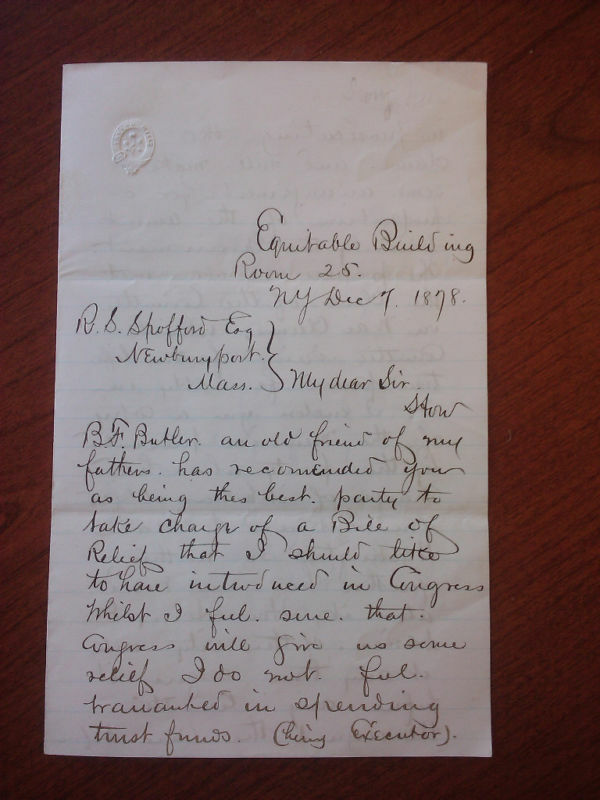 Equitable Building
Room 25.
NY Dec 7. 1878.
R. S. Spofford Esq
Newburyport.
Mass. } My dear Sir.
Hon
B. F. Butler. an old friend of my
fathers. has recomended you
as being the best. party to
take charge of a Bill of
Relief that I should like
to have introduced in Congress
Whilst I feel. sure. that.
Congress will give us some
relief I do not. feel.
warranted in spending
trust funds. (being Executor).